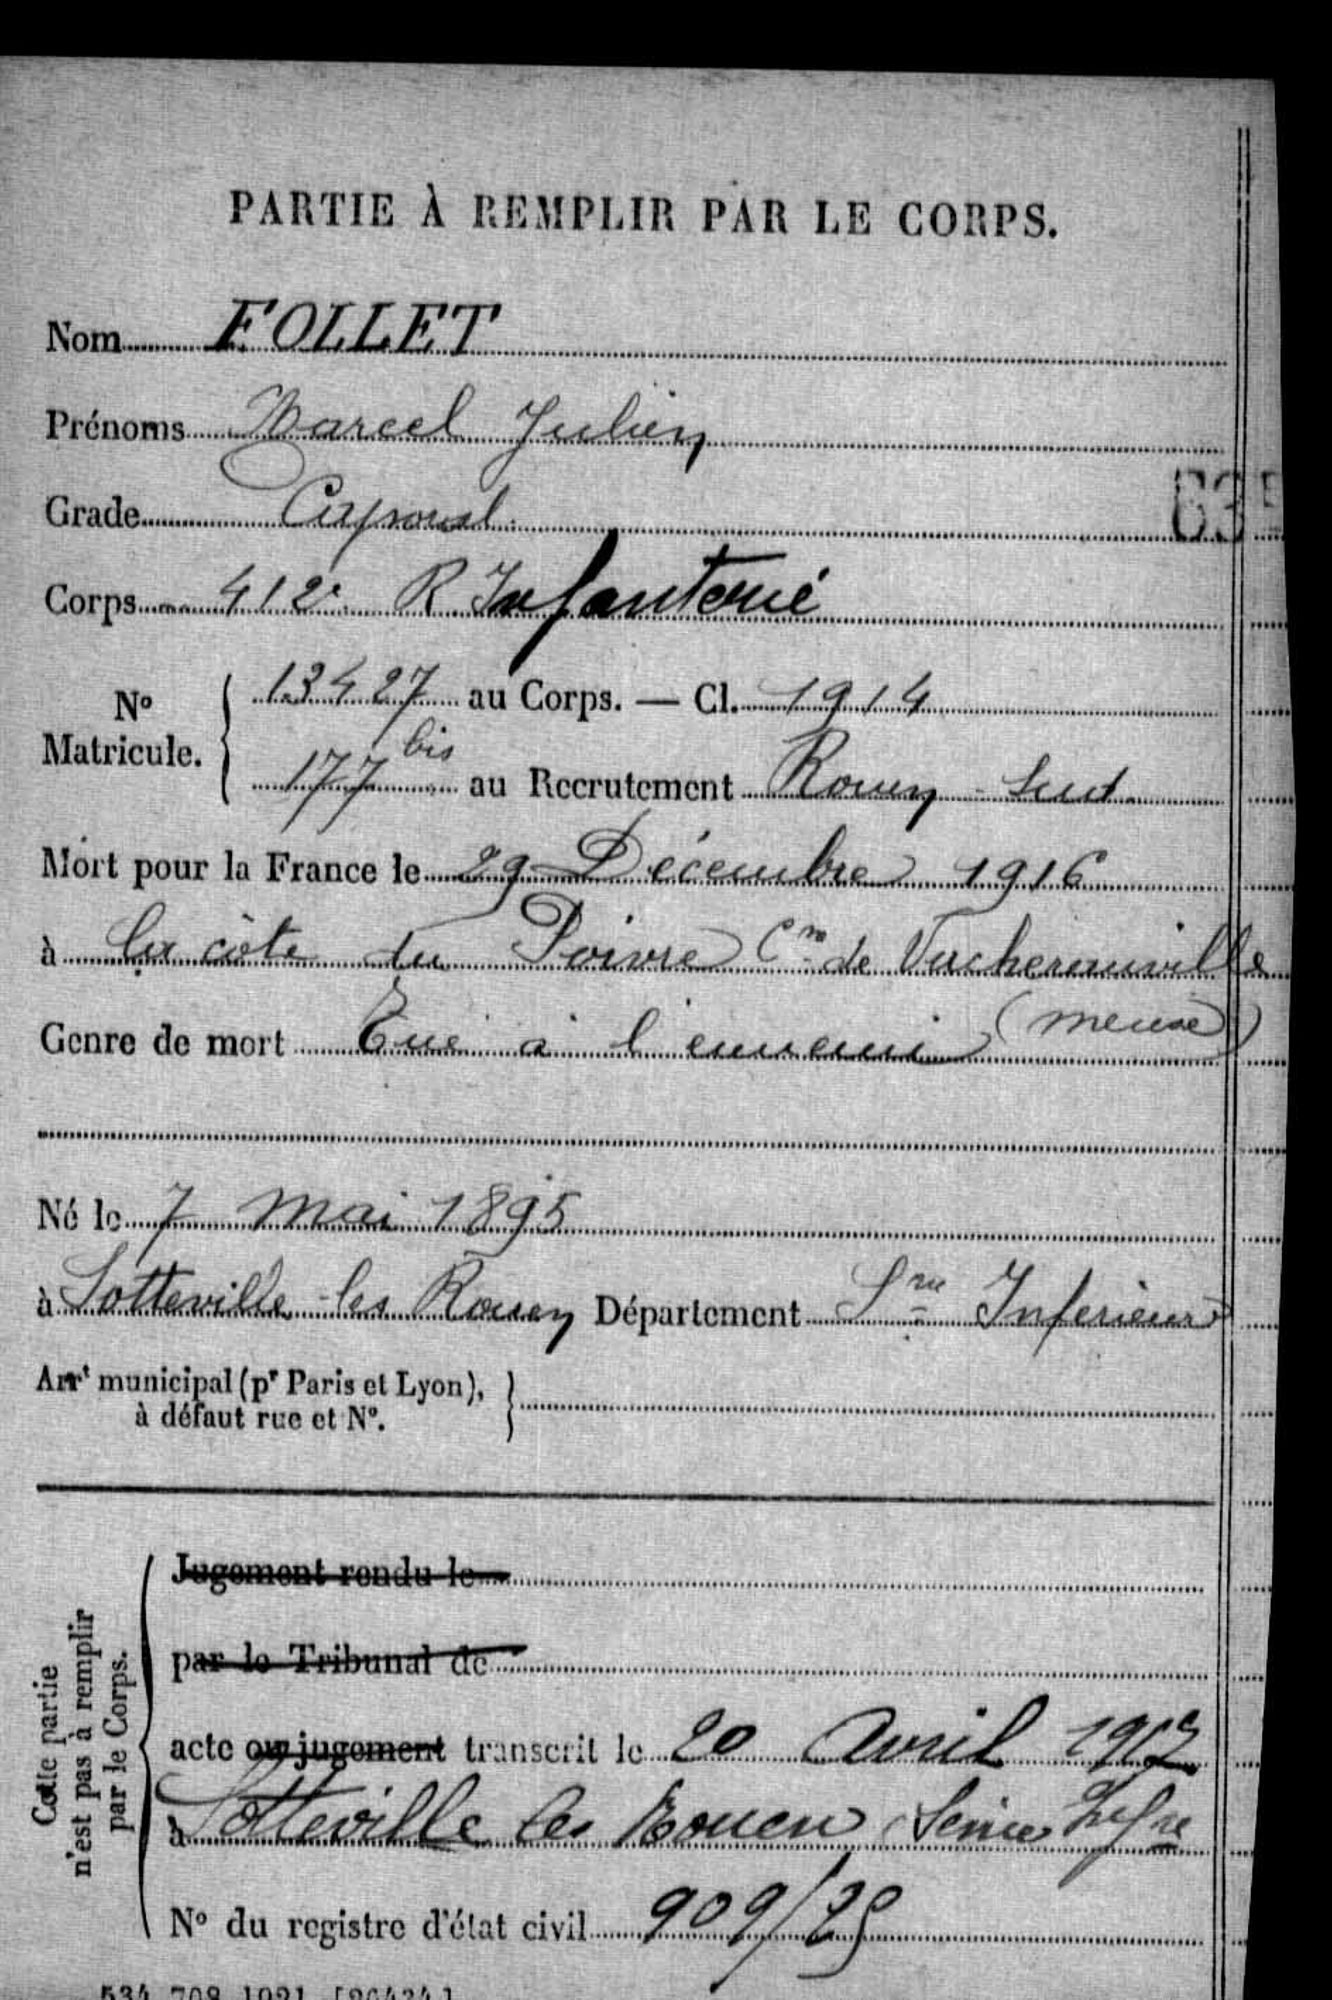 PARTIE À REMPLIR PAR LE CORPS.
Nom FOLLET
Prénoms Marcel Julien
Grade Caporal
Corps 412e R Infanterie
N° Matricule. 13427 au Corps. — Cl. 1914
177 bis au Recrutement Rouen - Sud
Mort pour la France le 29 Décembre 1916
à la côte du Poivre Cne de Vacherauville
(Meuse)
Genre de mort Tué à l'ennemi
Né le 7 Mai 1895
à Sotteville-les Rouen Département Sne Inferieure
Arrt municipal (pr Paris et Lyon),
à défaut rue et N°.
Cette partie
n'est pas à remplir
par le Corps.
Jugement rendu le
par le Tribunal de
acte ou jugement transcrit le 20 Avril 1917
à Sotteville les Rouen Seine Infre
N° du registre d'état civil 909/29
534 708 1921 [26434]